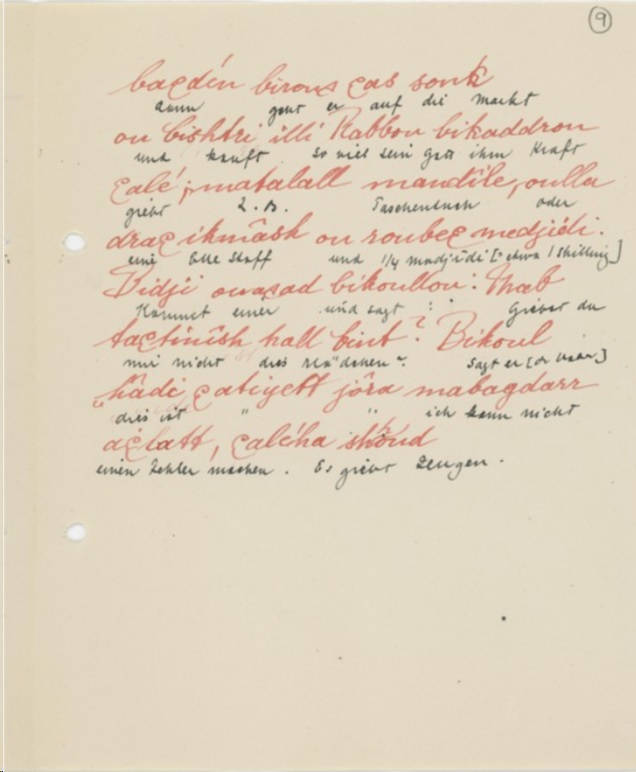 9
baçdén birous ças souk
dann geht er auf die Markt
ou bishtri illi Rabbou bikaddrou
und kauft so viel sein Gott ihm Kraft
çalé; matalall mandîle, oulla
giebt z.B. Taschentuch oder
draç ikmâsh ou roubeç medjidi.
eine Elle Stoff und 1/4 madjidi [= etwa 1 shilling]
Vidji ouaçad bikoullou: Mab
Kommet einer und sagt : Giebst du
taçtinîsh hall bint? Bikoul
mir nicht dies Mädchen? sagt er [der Vater]
"hâdi çatiyett jôra mabagdarr
dies ist " " ich kann nicht
açlatt, çaléha shhoud
einen Fehler machen. Es giebt Zeugen.